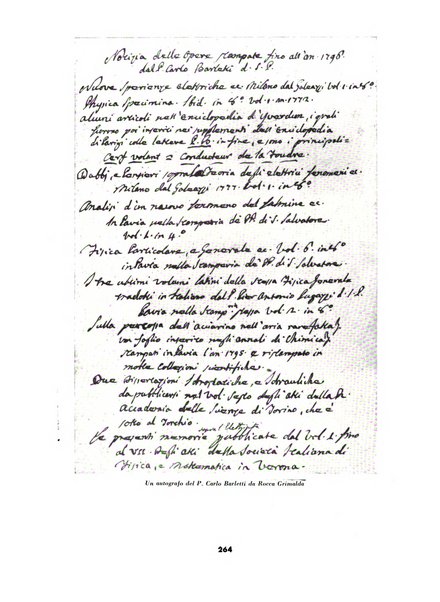 Notizia delle Opere stampate fino all'an. 1796.
dal P. Carlo Barletti d. S. P.
Nuove Sperienze elettriche ec. Milano dal Galeazzi vol. 1. in 8°
Physica Specimina. Ibid. in 8°. vol. 1. in 1772.
alcuni articoli nell'Enciclopedia d'Yverdon, i quali
furono poi inseriti nei supplementi dell'Enciclopedia
di Parigi colle lettere in fine, e sono i principali
Cerf volant e Conducteur de la Foudre.
Dubbj, e Pensieri sopra la Teoria degli elettrici fenomeni ec.
Milano dal Galeazzi 1777. vol. 1. in 8°
Analisi d'un nuovo fenomeno del fulmine ec.
In Pavia nella Stamperia de' PP. di S. Salvatore
vol. 1. in 4°
Fisica Particolare, e Generale ec. Vol. 6. in 8°
in Pavia nella Stamperia de' PP. di S. Salvatore.
I tre ultimi volumi latini della stessa Fisica Generale
tradotti in Italiano dal P. Pier Antonio d. S. P.
Pavia nella Stamp. stessa vol. 2. in 8°
Sulla percossa dell'acciarino nell'aria rarefatta
un foglio inserito negli annali di Chimica
stampati in Pavia l'an. 1795. e ristampato in
molte collezioni scientifiche.
Due Dissertazioni Idrostatiche, e Idrauliche
da pubblicarsi nel Vol. Sesto degli atti della R.
Accademia delle Scienze di Torino, che è
sotto al Torchio.
Le presenti memorie pubblicate dal Vol. 1. fino
al VII. degli atti della Società Italiana di
Fisica, e Matematica in Verona.
Un autografo del P. Carlo Barletti da Rocca Grimalda
264